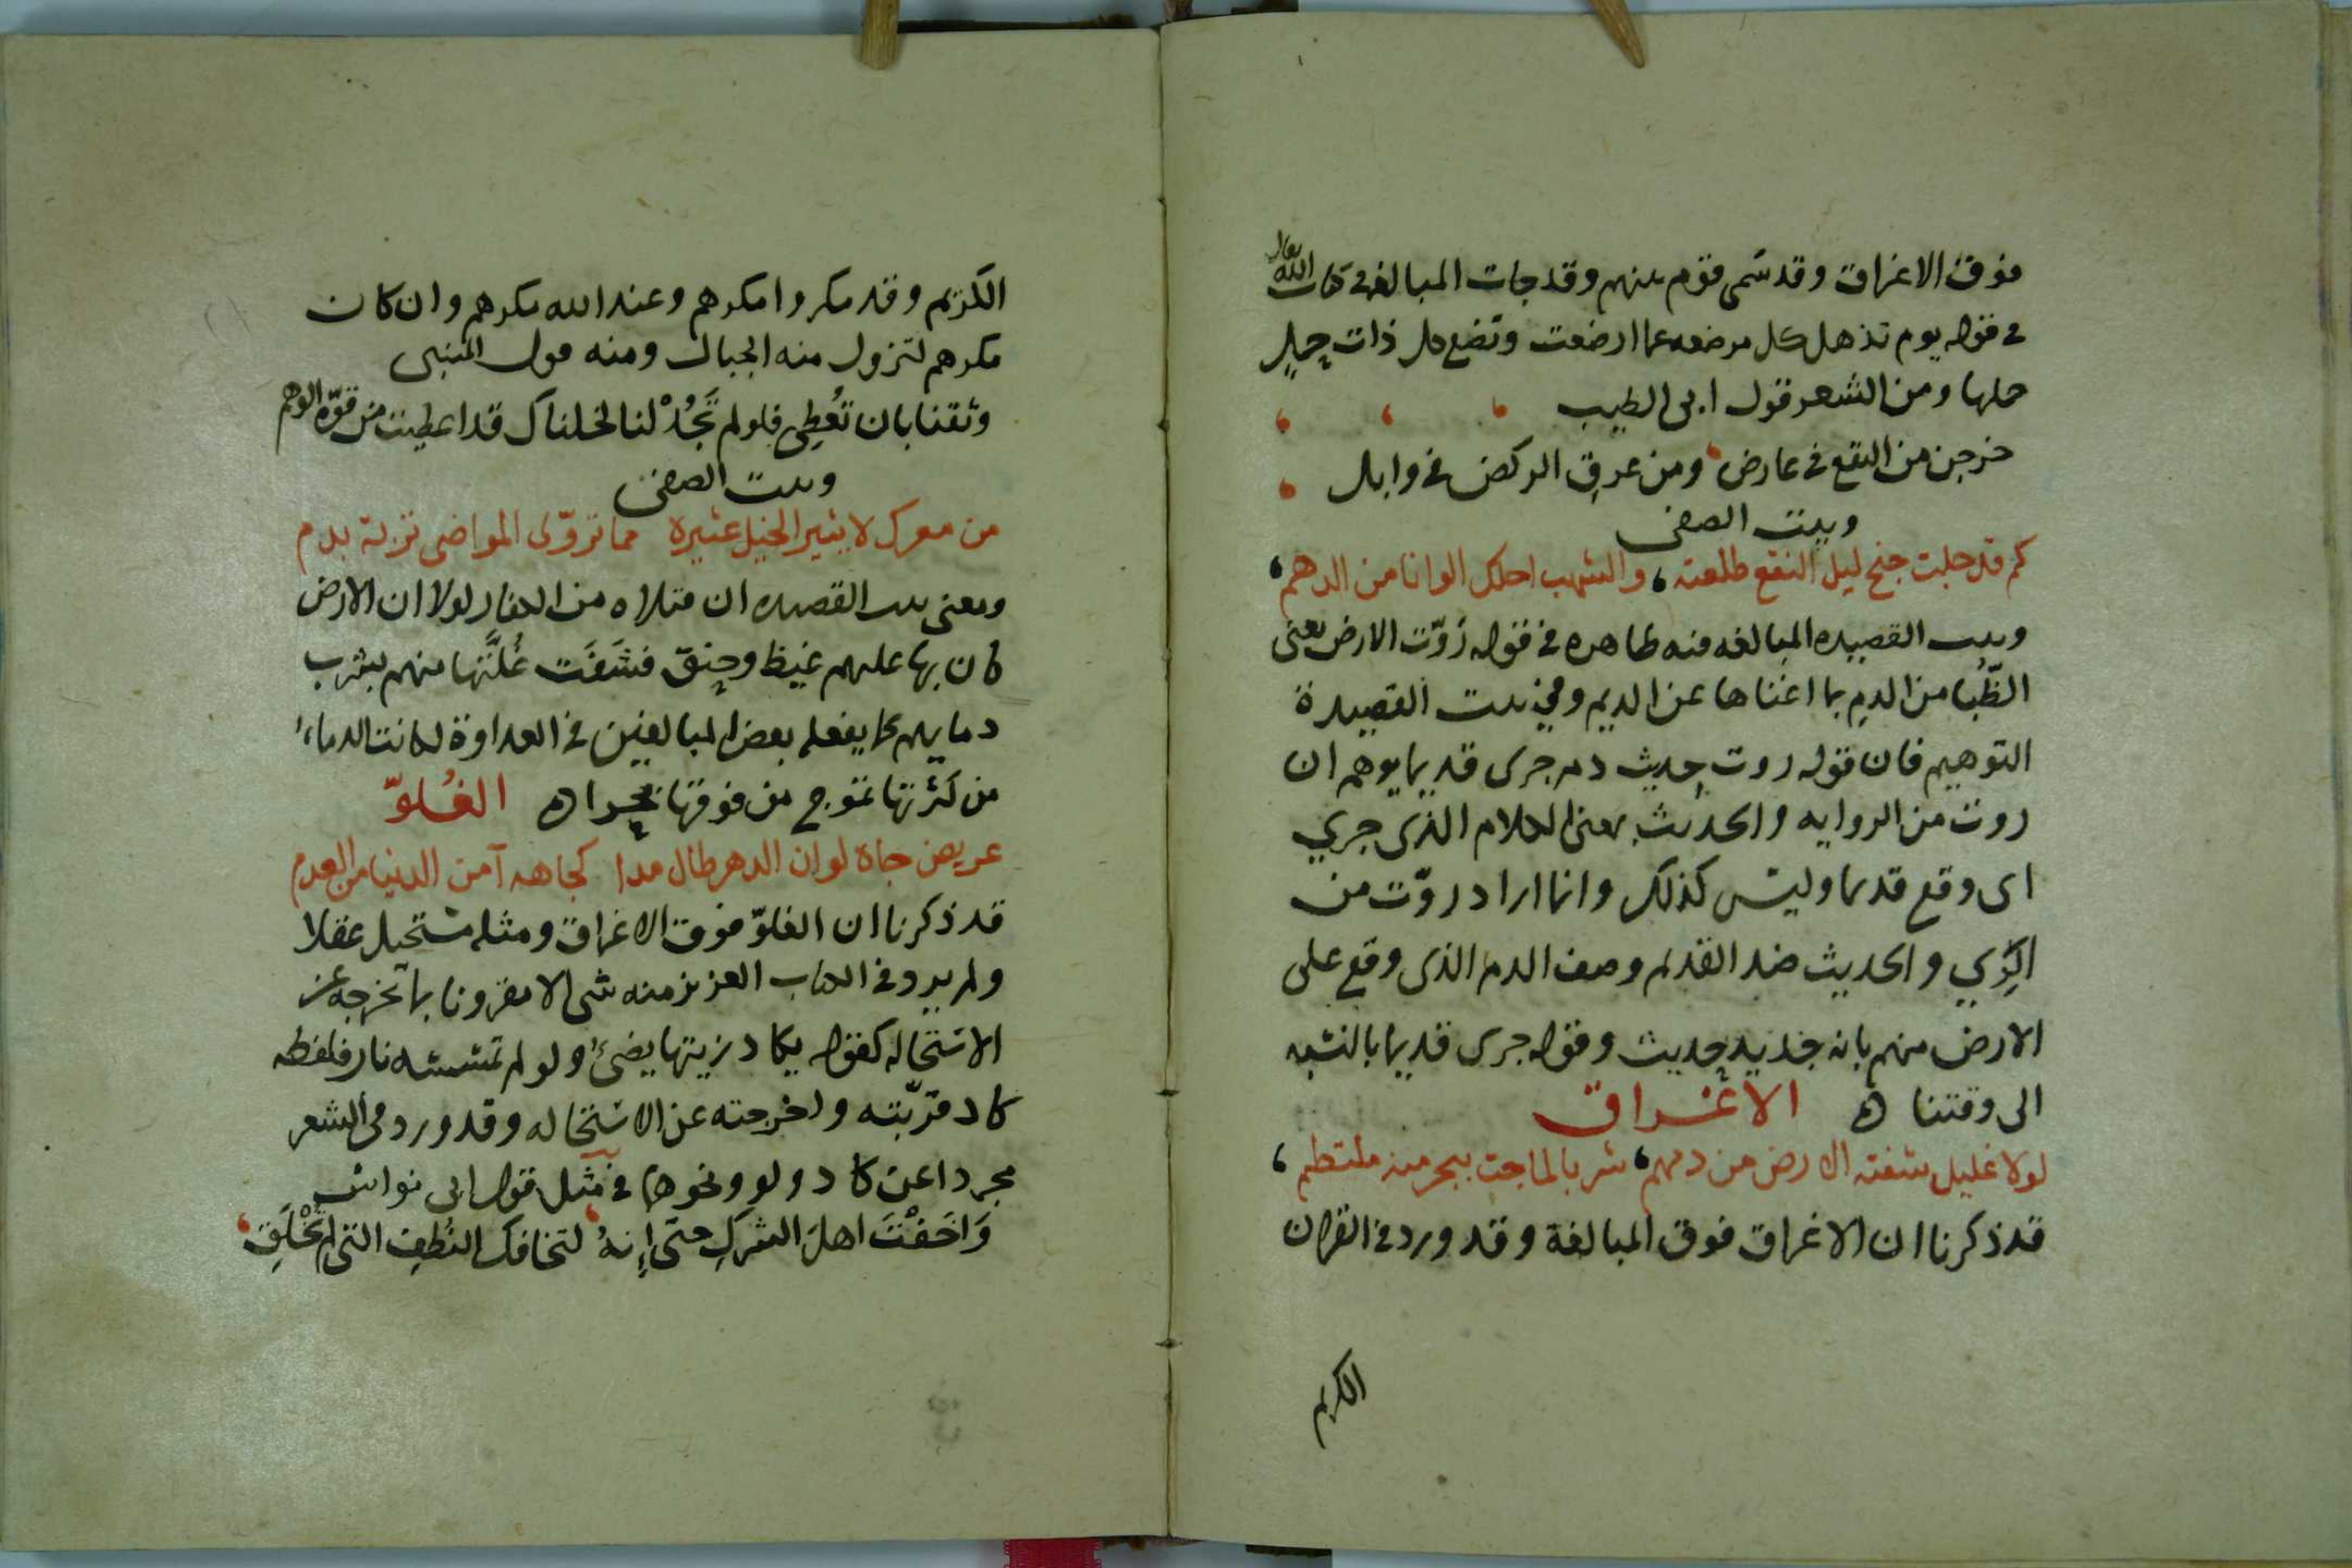 فوق الاغراق وقد سمى قوم بينهم وقد جات المبالغه في كتاب الله تعالى
في قوله يوم تذهل كل مرضعه عما ارضعت وتضع كل ذات حمل
حملها ومن الشعر قول ابى الطيب
خرجن من النقع في عارض ومن عرق الركض في وابل
وبيت الصفى
كم قد جلت جنح ليل النقع طلعته والشهب احلك الوانا من الدهم
وبيت القصيده المبالغه فيه ظاهره في قوله روّت الارض يعنى
الظُّبا من الدم بما اغناها عن الديم وفي بيت القصيدة
التوهيم فان قوله روت حديث دم جرى قديما يوهم ان
روت من الروايه والحديث بمعنى الكلام الذى جري
اى وقع قديما وليس كذلك وانما اراد روّت من
الرِّي والحديث ضد القديم وصف الدم الذى وقع على
الارض منهم بانه جديد حديث وقوله جرى قديما بالنسبه
الى وقتنا ه الاغراق
لولا غليل شفته الارض من دمهم شربا لماجت ببحر منه ملتطم
قد ذكرنا ان الاغراق فوق المبالغة وقد ورد في القران
الكريم
الكريم وقد مكروا مكرهم وعند الله مكرهم وان كان
مكرهم لتزول منه الجبال ومنه قول المتنبى
وثقنا بان تُعْطِى فلو لم تَجُدْ لنا لخلناك قد اعطيت من قوّة الوهم
وبيت الصفى
من معرك لا يثير الخيل عثيره مما تروّى المواضى تربة بدم
ومعنى بيت القصيده ان قتلاه من الكفار لولا ان الارض
كان بها عليهم غيظ وحنق فشَفَت غُلَّتَها منهم بشرب
دمايهم كما يفعله بعض المبالغين في العداوة لكانت الدماء
من كثرتها تموج من فوقها بحرا ه الغُلوّ
عريض جاة لو ان الدهر طال مدا كجاهه آمن الدنيا من العدم
قد ذكرنا ان الغلوّ فوق الاغراق ومثله مستحيل عقلا
ولم يرد في الكتاب العزيز منه شى الا مقرونا بما تخرجه عن
الاستحاله كقوله يكاد زيتها يضئ ولو لم تمسسه نار فلفظه
كاد قرّبته واخرجته عن الاستحاله وقد ورد في الشعر
مجردا عن كاد ولو ونحوها في مثل قول ابى نواس
وَاَخَفْتَ اهلَ الشركِ حتى اِنهُ لتخافك النُطَف التى لم تُخْلَقِ